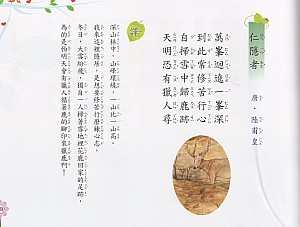 仁隱者
唐．陸甫皇
萬峯迴遶一峯深
到此常修苦行心
自掃雪中歸鹿跡
天明恐有獵人尋
深山林中，山峰環繞，一山比一山高，
我來這裡隱居，是想要修苦行磨鍊心志。
冬日，大雪紛飛，獨自一人掃著雪地裡花鹿回家的足跡，
為的是怕明天會有獵人循著鹿的腳印來獵鹿啊！